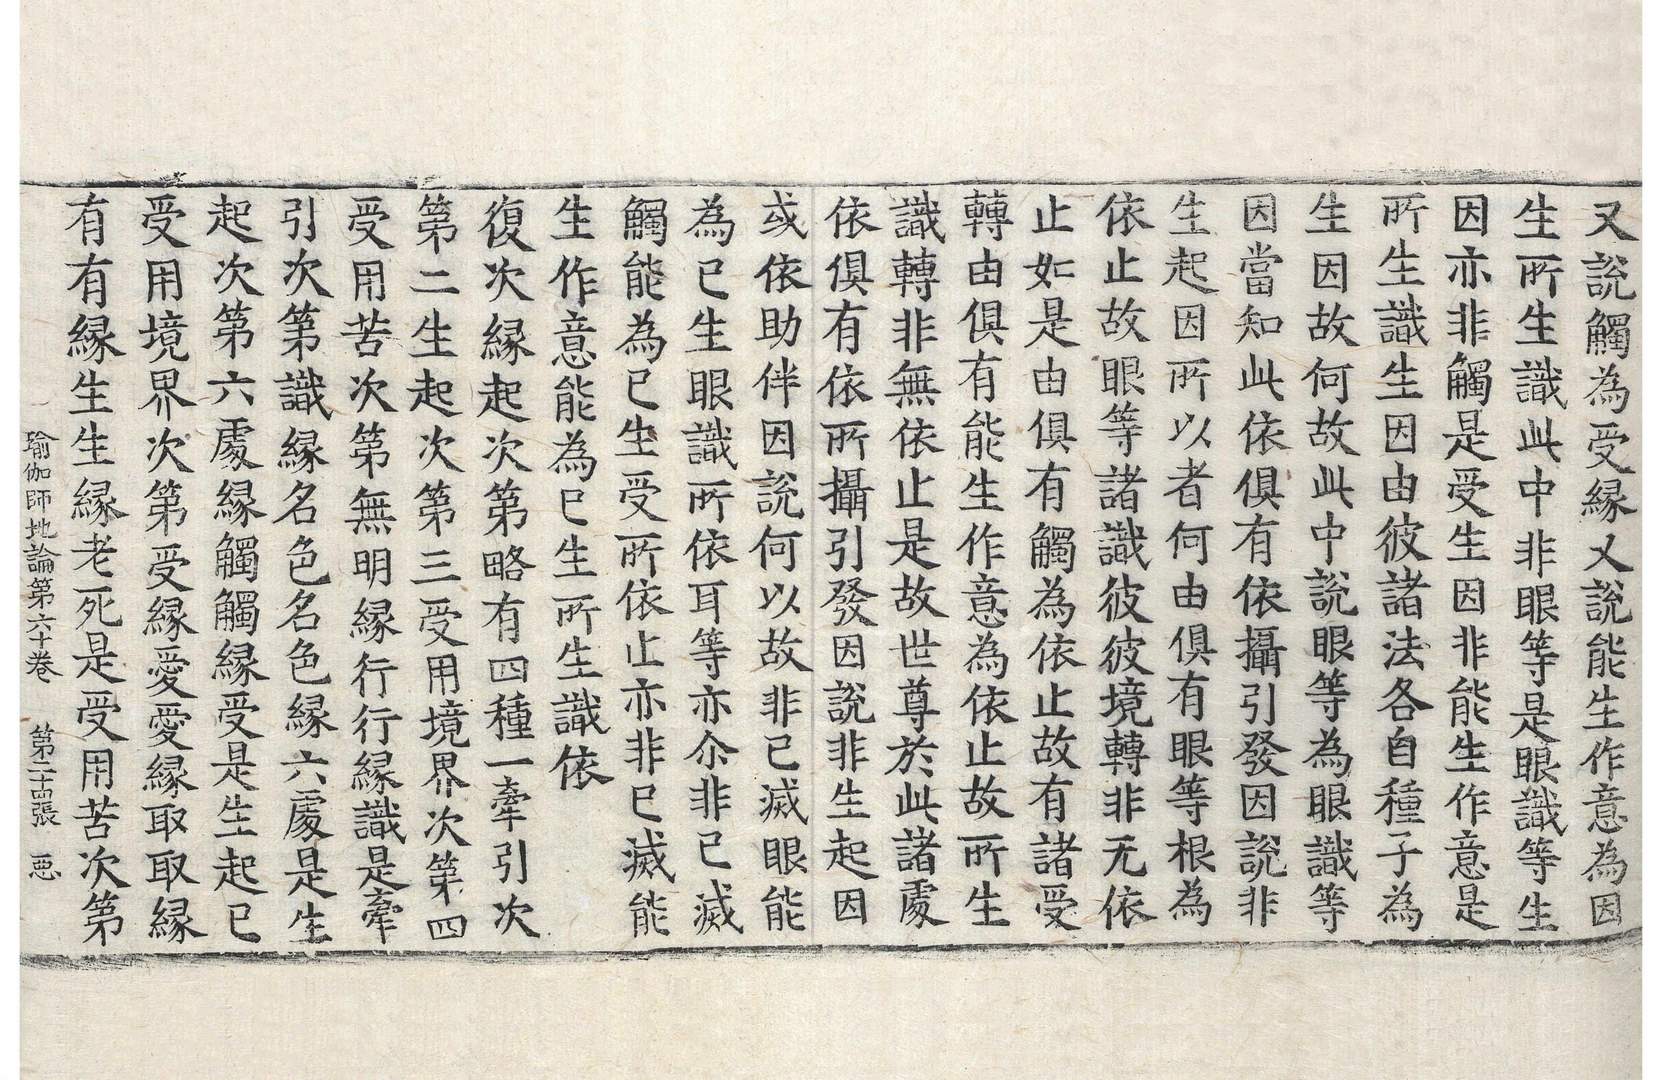 又說觸為受縁又說能生作意為因
生所生識此中非眼等是眼識等生
因亦非觸是受生因非能生作意是
所生識生因由彼諸法各自種子為
生因故何故此中說眼等為眼識等
因當知此依俱有依攝引發因說非
生起因所以者何由俱有眼等根為
依止故眼等諸識彼彼境轉非无依
止如是由俱有觸為依止故有諸受
轉由俱有能生作意為依止故所生
識轉非無依止是故世尊於此諸處
依俱有依所攝引發因說非生起因
或依助伴因說何以故非已滅眼能
為已生眼識所依耳等亦尒非已滅
觸能為已生受所依止亦非已滅能
生作意能為已生所生識依
復次縁起次第略有四種一牽引次
第二生起次第三受用境界次第四
受用苦次第無明縁行行縁識是牽
引次第識縁名色名色縁六處是生
起次第六處縁觸觸縁受是生起已
受用境界次第受縁愛愛縁取取縁
有有縁生生縁老死是受用苦次第
瑜伽師地論第六十卷　第二十四張　惡